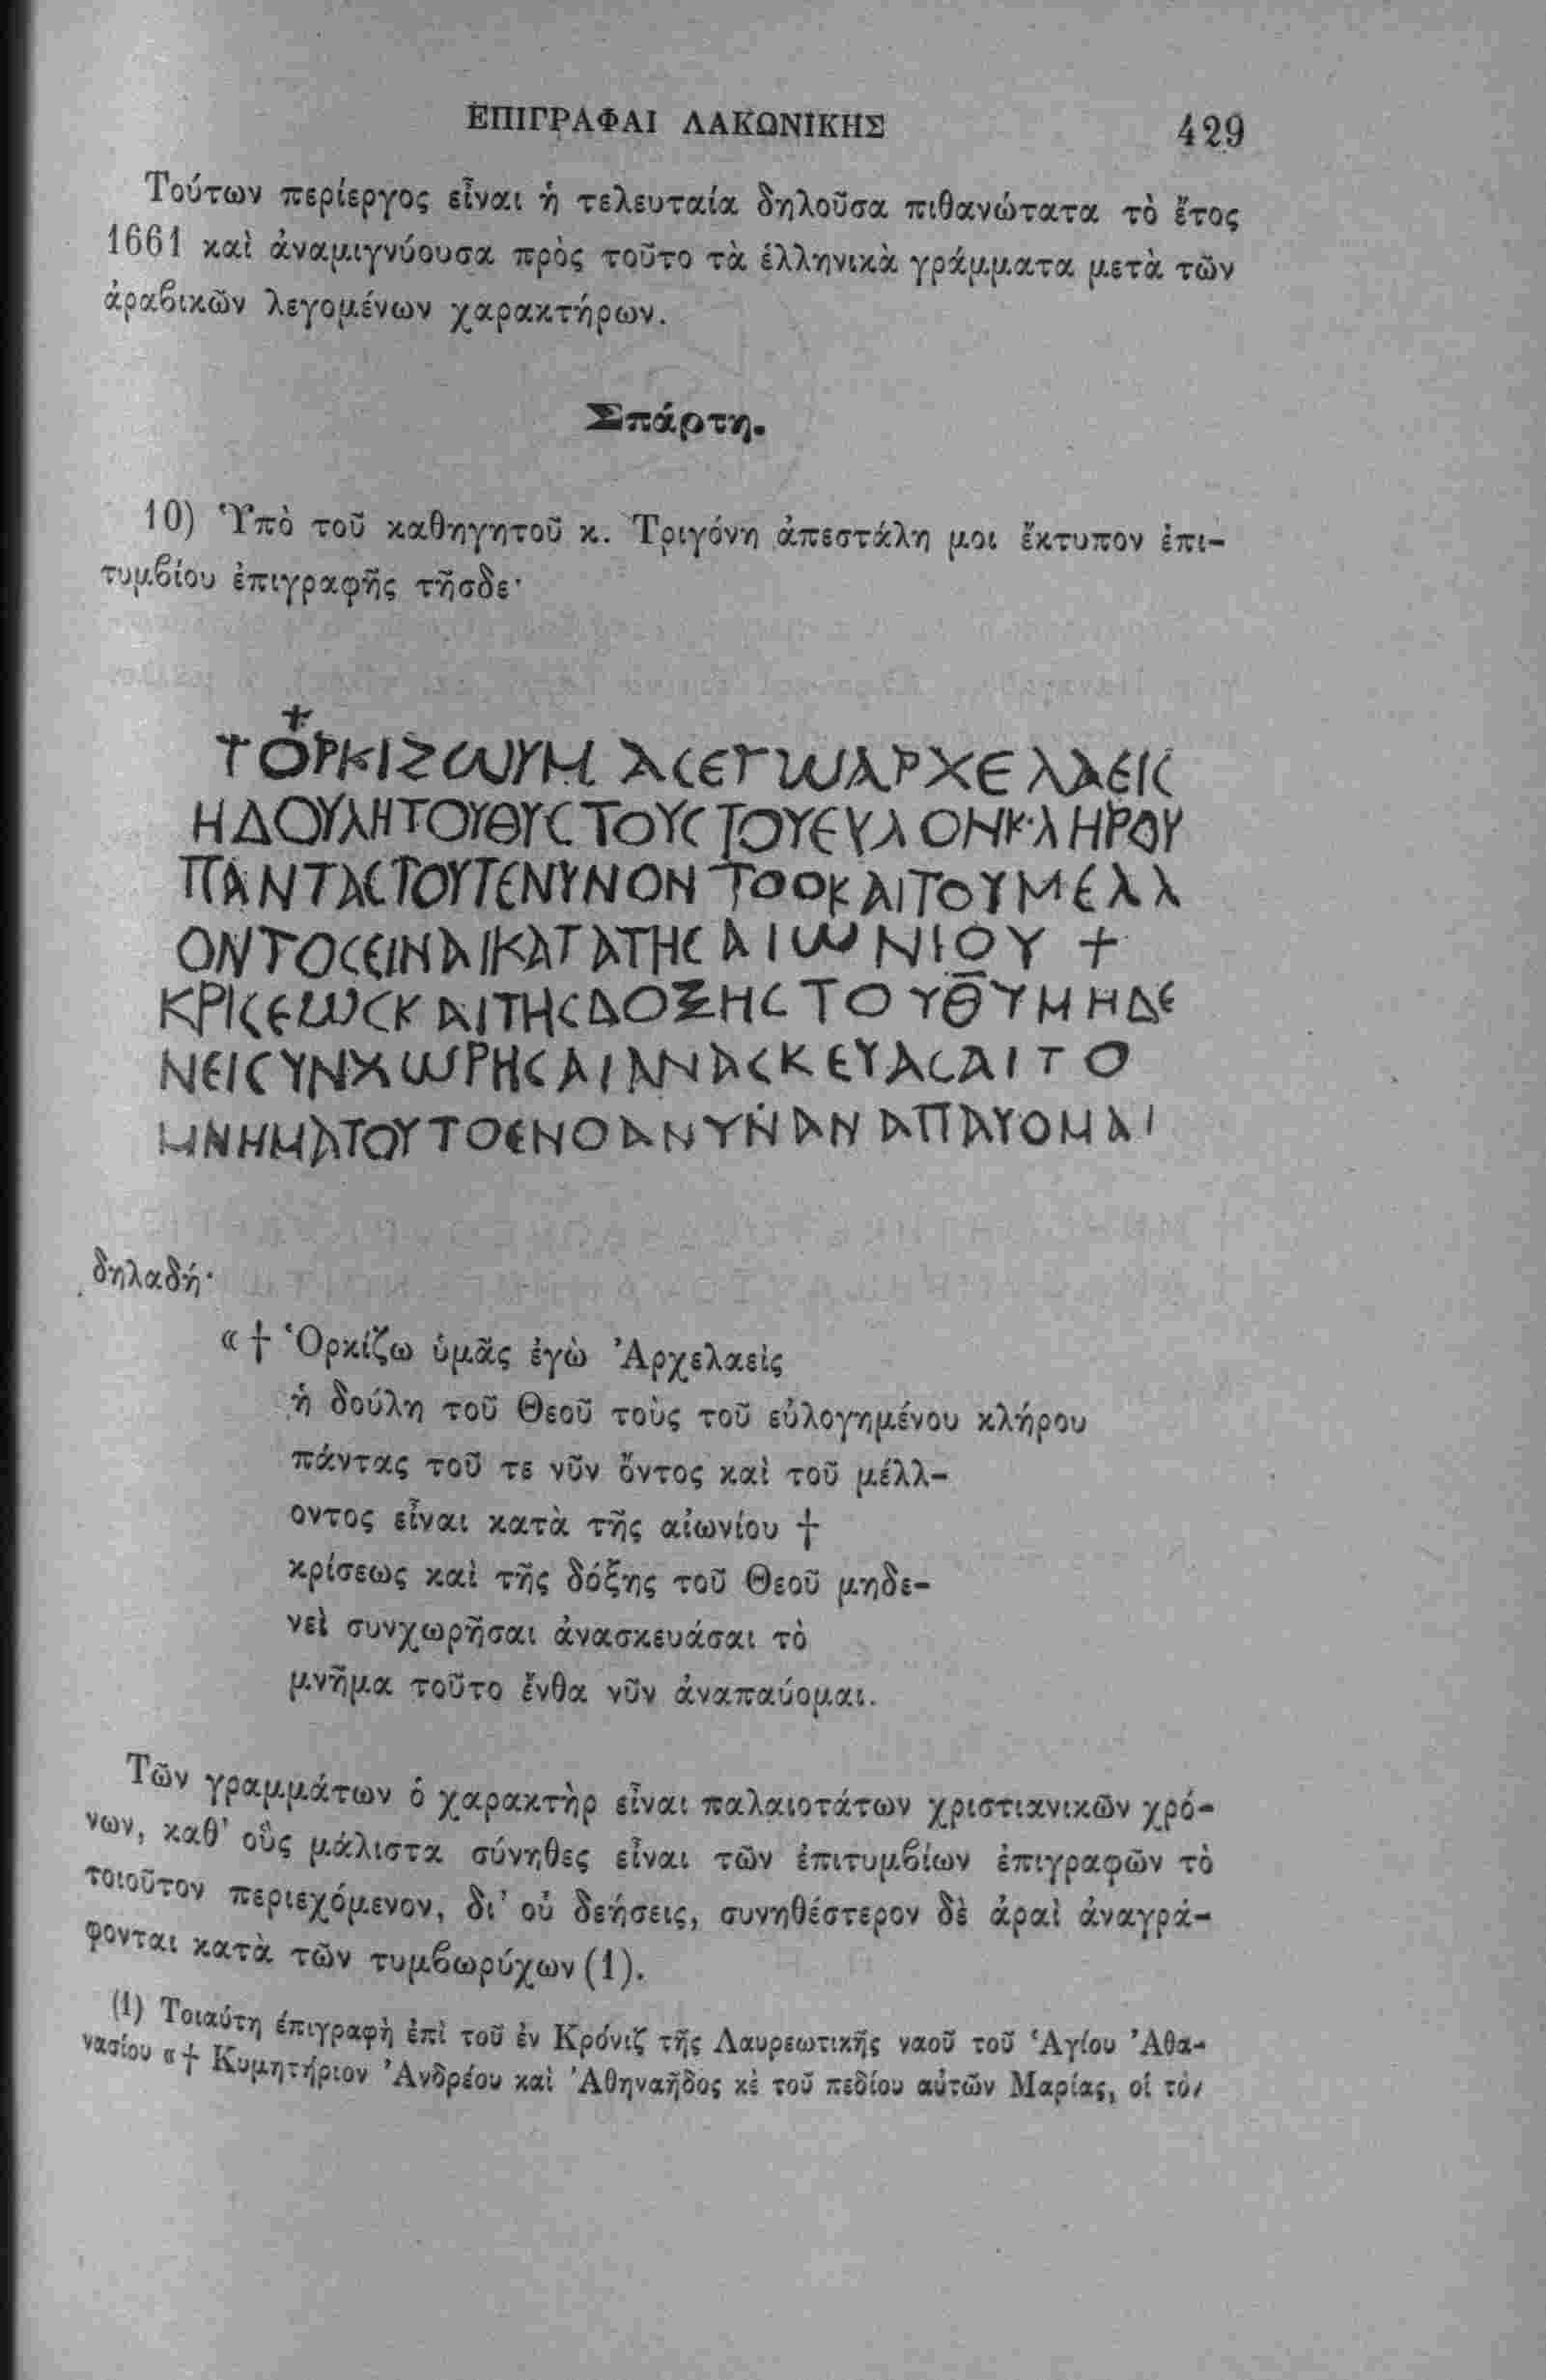 ΕΠΙΓΡΑΦΑΙ ΛΑΚΩΝΙΚΗΣ 429
Τούτων περίεργος εἶναι ἡ τελευταία δηλοῦσα πιθανώτατα τὸ ἔτος
1661 καὶ ἀναμιγνύουσα πρὸς τοῦτο τὰ ἑλληνικὰ γράμματα μετὰ τῶν
ἀραβικῶν λεγομένων χαρακτήρων.
Σπάρτη.
10) Ὑπὸ τοῦ καθηγητοῦ κ. Τριγόνη ἀπεστάλη μοι ἔκτυπον ἐπι-
τυμβίου ἐπιγραφῆς τῆσδε·
+
ΤΟΡΚΙΖΩΥΜΑϹΕΓΩΑΡΧΕΛΑΕΙϹ
ΗΔΟΥΛΗΤΟΥΘΥϹΤΟΥϹΤΟΥΕΥΛΟΗΚ·ΛΗΡΟΥ
ΠΑΝΤΑϹΤΟΥΤΕΝΥΝΟΝΤΟΟΚΑΙΤΟΥΜΕΛΛ
ΟΝΤΟϹΕΙΝΑΙΚΑΤΑΤΗϹΑΙΩΝΙΟΥ +
ΚΡΙϹΕΩϹΚΑΙΤΗϹΔΟΞΗϹΤΟΥΘ̅ΥΜΗΔΕ
ΝΕΙϹΥΝΧΩΡΗϹΑΙΑΝΑϹΚΕΥΑϹΑΙΤΟ
ΜΝΗΜΑΤΟΥΤΟΕΝΘΑΝΥΝΑΝΑΠΑΥΟΜΑΙ
δηλαδή·
«† Ὁρκίζω ὑμᾶς ἐγὼ Ἀρχελαεὶς
ἡ δούλη τοῦ Θεοῦ τοὺς τοῦ εὐλογημένου κλήρου
πάντας τοῦ τε νῦν ὄντος καὶ τοῦ μέλλ-
οντος εἶναι κατὰ τῆς αἰωνίου †
κρίσεως καὶ τῆς δόξης τοῦ Θεοῦ μηδε-
νεὶ συνχωρῆσαι ἀνασκευάσαι τὸ
μνῆμα τοῦτο ἔνθα νῦν ἀναπαύομαι.
Τῶν γραμμάτων ὁ χαρακτὴρ εἶναι παλαιοτάτων χριστιανικῶν χρό-
νων, καθ' οὓς μάλιστα σύνηθες εἶναι τῶν ἐπιτυμβίων ἐπιγραφῶν τὸ
τοιοῦτον περιεχόμενον, δι' οὗ δεήσεις, συνηθέστερον δὲ ἀραὶ ἀναγρά-
φονται κατὰ τῶν τυμβωρύχων (1).
(1) Τοιαύτη ἐπιγραφὴ ἐπὶ τοῦ ἐν Κρόνιζ τῆς Λαυρεωτικῆς ναοῦ τοῦ Ἁγίου Ἀθα-
νασίου «† Κυμητήριον Ἀνδρέου καὶ Ἀθηναῆδος κὲ τοῦ πεδίου αὐτῶν Μαρίας, οἱ τό